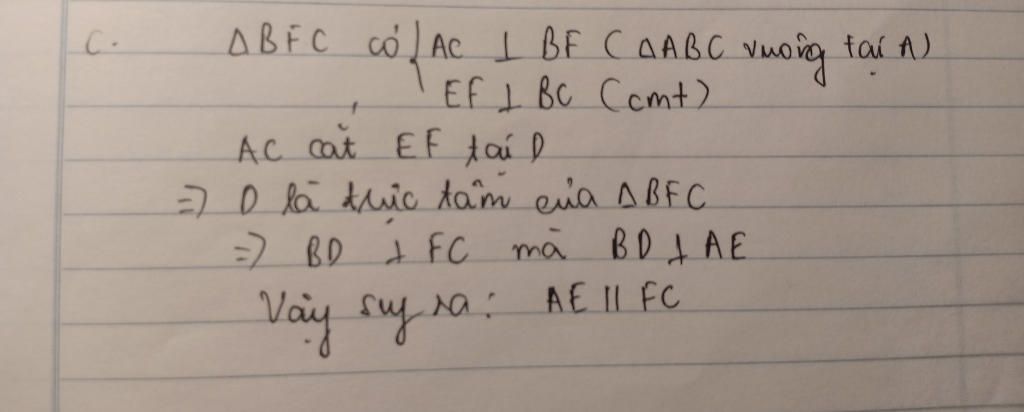 c. ΔBFC có { AC ⊥ BF (ΔABC vuông tại A)
EF ⊥ BC (cmt)
AC cắt EF tại D
=> D là trực tâm của ΔBFC
=> BD ⊥ FC mà BD ⊥ AE
Vậy suy ra: AE || FC